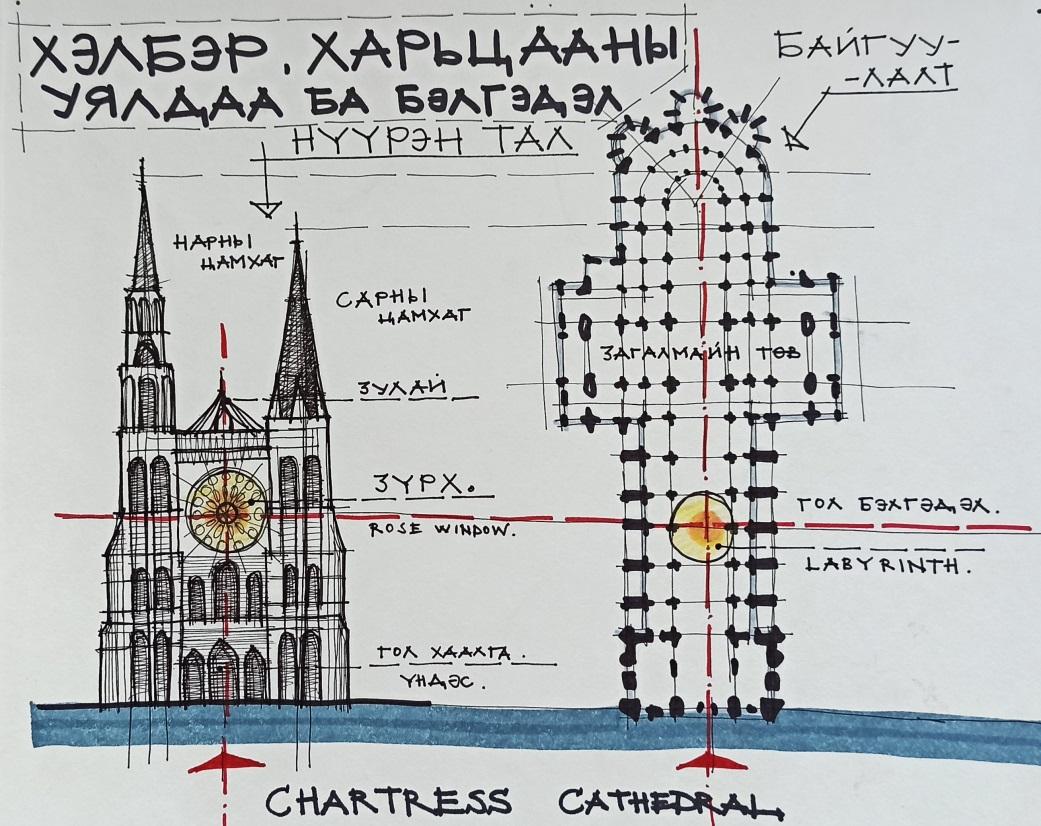 ХЭЛБЭР, ХАРЬЦААНЫ
УЯЛДАА БА БЭЛГЭДЭЛ
НҮҮРЭН ТАЛ
БАЙГУУ-
-ЛАЛТ
НАРНЫ
ЦАМХАГ
САРНЫ
ЦАМХАГ
ЗУЛАЙ
ЗАГАЛМАЙН ТӨВ
ЗҮРХ.
ROSE WINDOW.
ГОЛ БЭЛГЭДЭЛ.
LABYRINTH.
ГОЛ ХААЛГА.
ҮНДЭС.
CHARTRESS CATHEDRAL